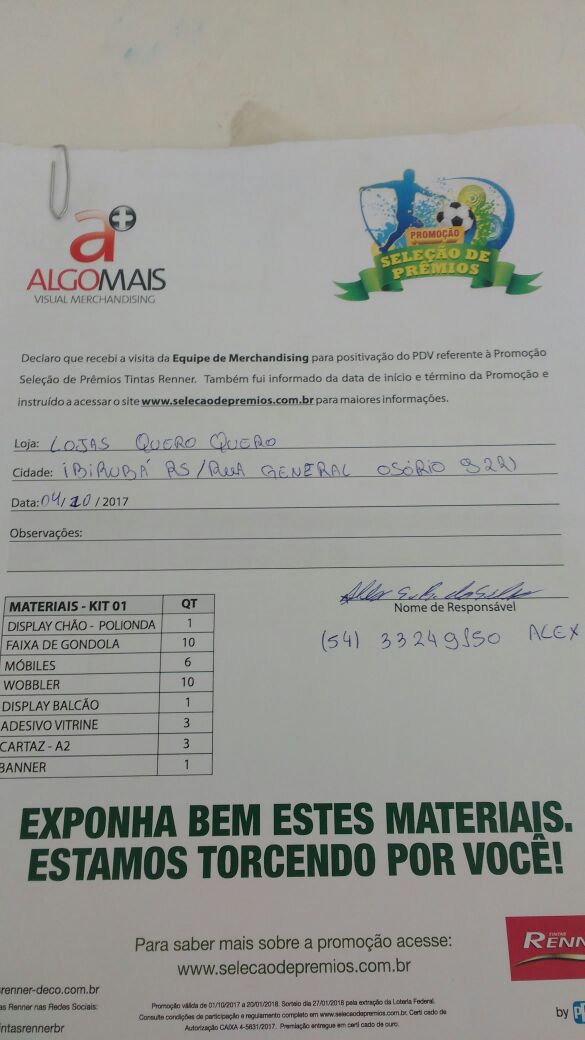 a+
ALGOMAIS
VISUAL MERCHANDISING
PROMOÇÃO
SELEÇÃO DE
PRÊMIOS
Declaro que recebi a visita da Equipe de Merchandising para positivação do PDV referente à Promoção
Seleção de Prêmios Tintas Renner. Também fui informado da data de início e término da Promoção e
instruído a acessar o site www.selecaodepremios.com.br para maiores informações.
Loja: LOJAS QUERO QUERO
Cidade: IBIRUBÁ RS / RUA GENERAL OSÓRIO 922)
Data: 04/10/2017
Observações:
Nome de Responsável
(54) 33249150 ALEX
MATERIAIS - KIT 01 QT
DISPLAY CHÃO - POLIONDA 1
FAIXA DE GONDOLA 10
MÓBILES 6
WOBBLER 10
DISPLAY BALCÃO 1
ADESIVO VITRINE 3
CARTAZ - A2 3
BANNER 1
EXPONHA BEM ESTES MATERIAIS.
ESTAMOS TORCENDO POR VOCÊ!
Para saber mais sobre a promoção acesse:
www.selecaodepremios.com.br
TINTAS
RENN
renner-deco.com.br
as Renner nas Redes Sociais:
intasrennerbr
Promoção válida de 01/10/2017 a 20/01/2018. Sorteio dia 27/01/2018 pela extração da Loteria Federal.
Consulte condições de participação e regulamento completo em www.selecaodepremios.com.br. Certi cado de
Autorização CAIXA 4-5631/2017. Premiação entregue em certi cado de ouro.
by